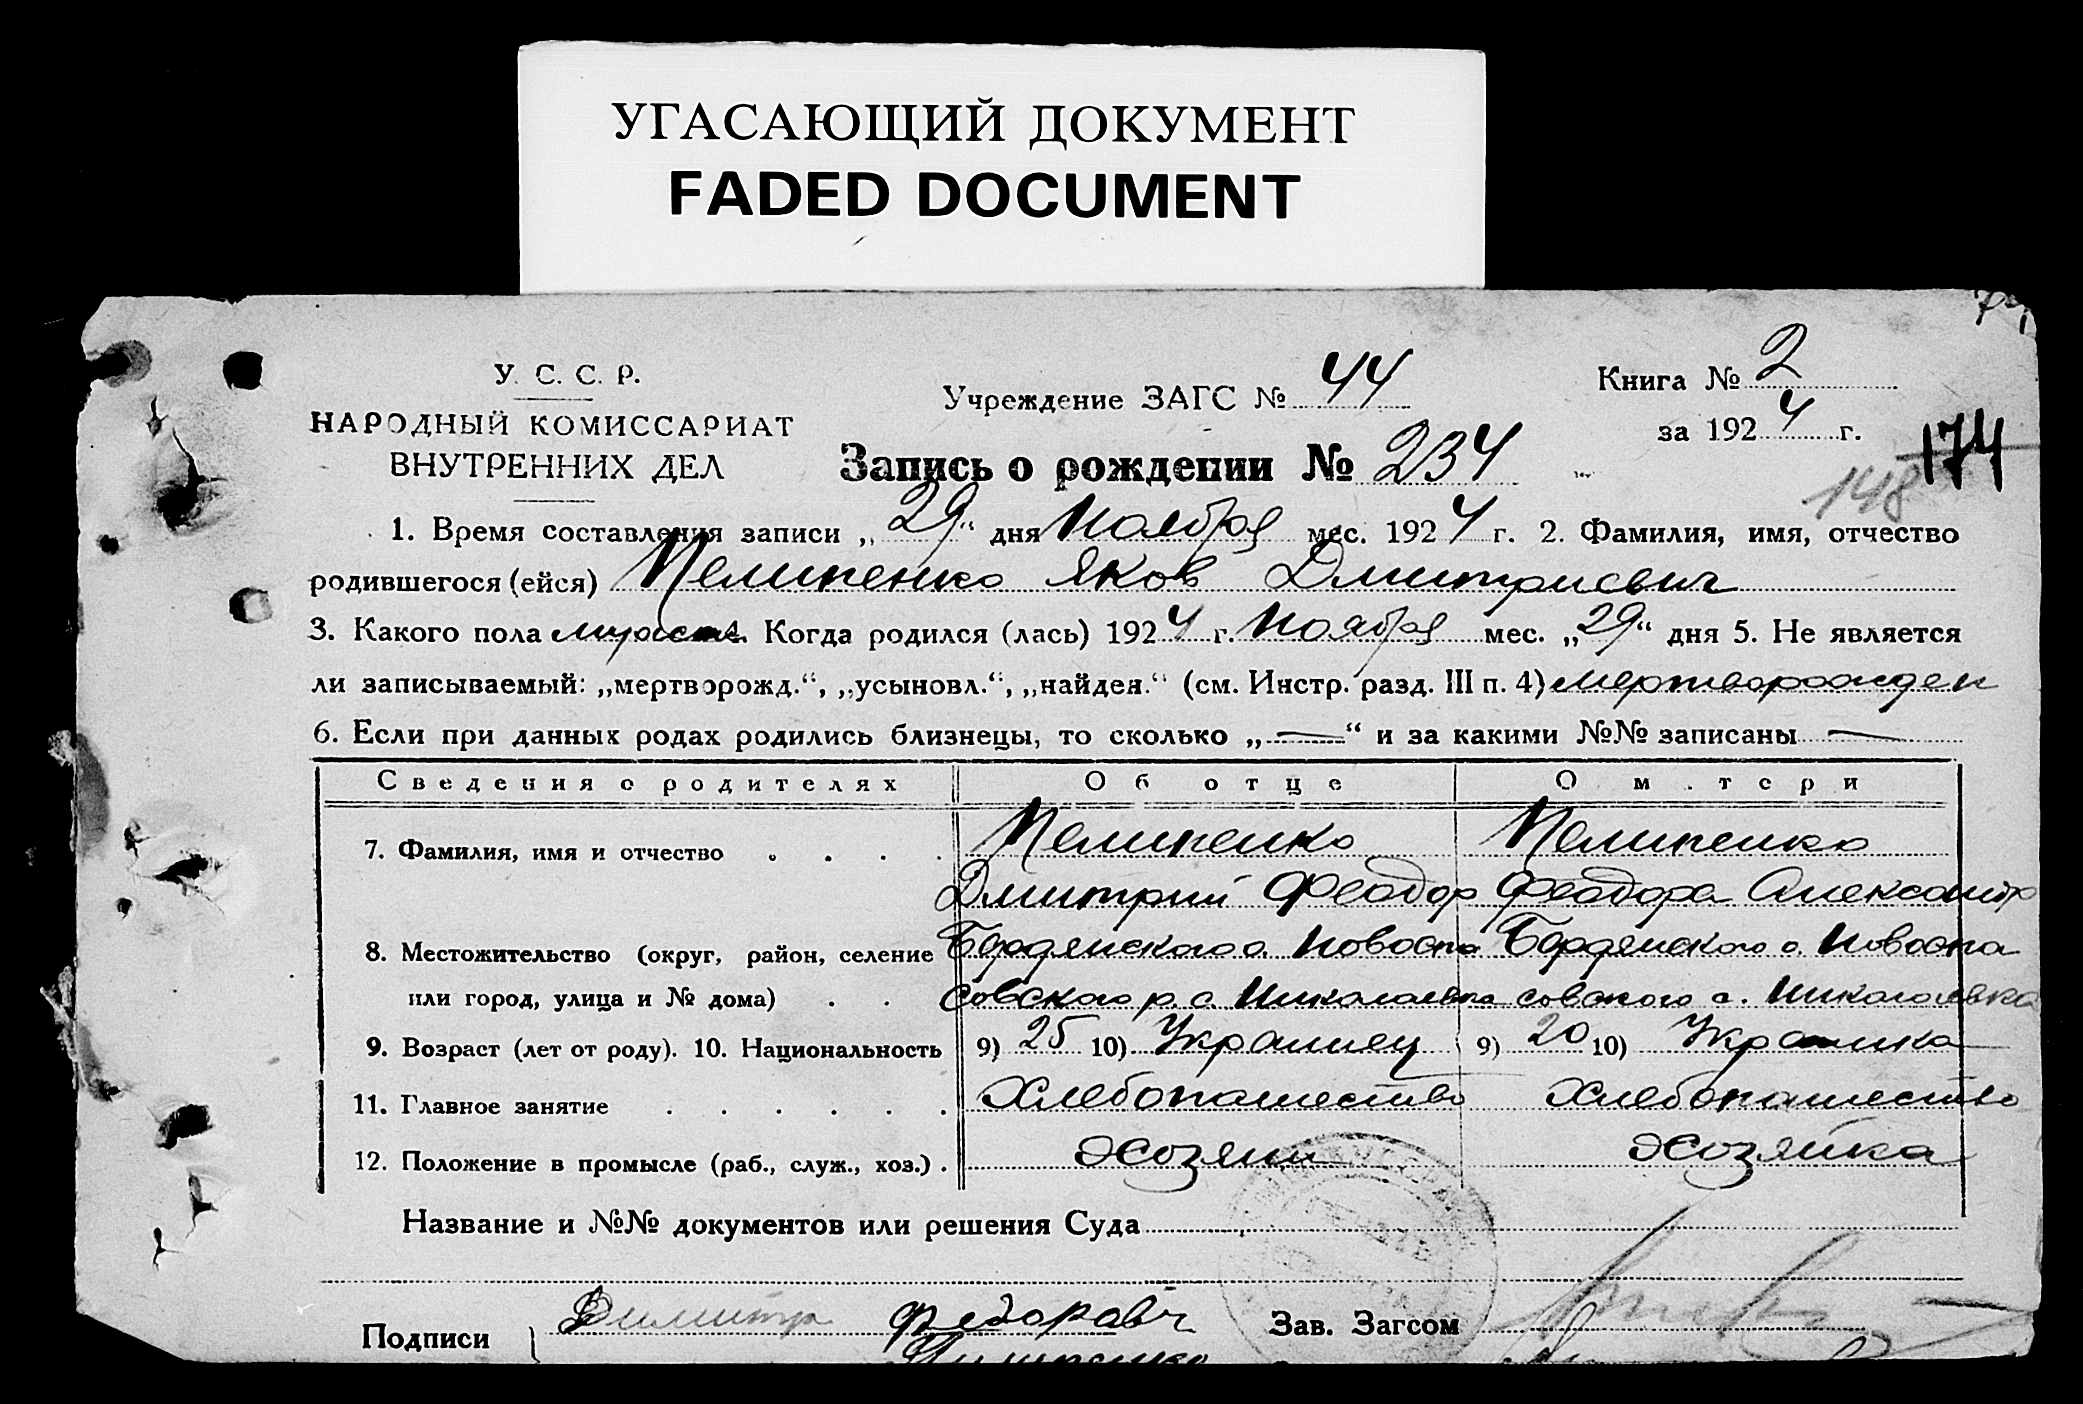 УГАСАЮЩИЙ ДОКУМЕНТ
FADED DOCUMENT
У. С. С. Р.
НАРОДНЫЙ КОМИССАРИАТ
ВНУТРЕННИХ ДЕЛ
Учреждение ЗАГС № 44
Книга № 2
за 1924 г.
174
148
Запись о рождении № 234
1. Время составления записи „29“ дня Ноября мес. 1924 г. 2. Фамилия, имя, отчество
родившегося (ейся) Пелипенко Яков Дмитриевич
3. Какого пола мужск 4. Когда родился (лась) 1924 г. Ноября мес. „29“ дня 5. Не является
ли записываемый: „мертворожд.“, „усыновл.“, „найден.“ (см. Инстр. разд. III п. 4) мертворожден
6. Если при данных родах родились близнецы, то сколько „—“ и за какими №№ записаны —
Сведения о родителях Об отце О м . тери
7. Фамилия, имя и отчество . . . . Пелипенко Пелипенко
Дмитрий Феодор Феодора Александр
8. Местожительство (округ, район, селение Бердянского о. Новоспа Бердянского о. Новоспа
или город, улица и № дома) . . совского р. с. Николаевка совского с. Николаевка
9. Возраст (лет от роду). 10. Национальность 9) 25 10) Украинец 9) 20 10) Украинка
11. Главное занятие . . . . . . Хлебопашество Хлебопашество
12. Положение в промысле (раб., служ., хоз.) . Хозяин Хозяйка
Название и №№ документов или решения Суда
Подписи } Димитр Федоравич Зав. Загсом